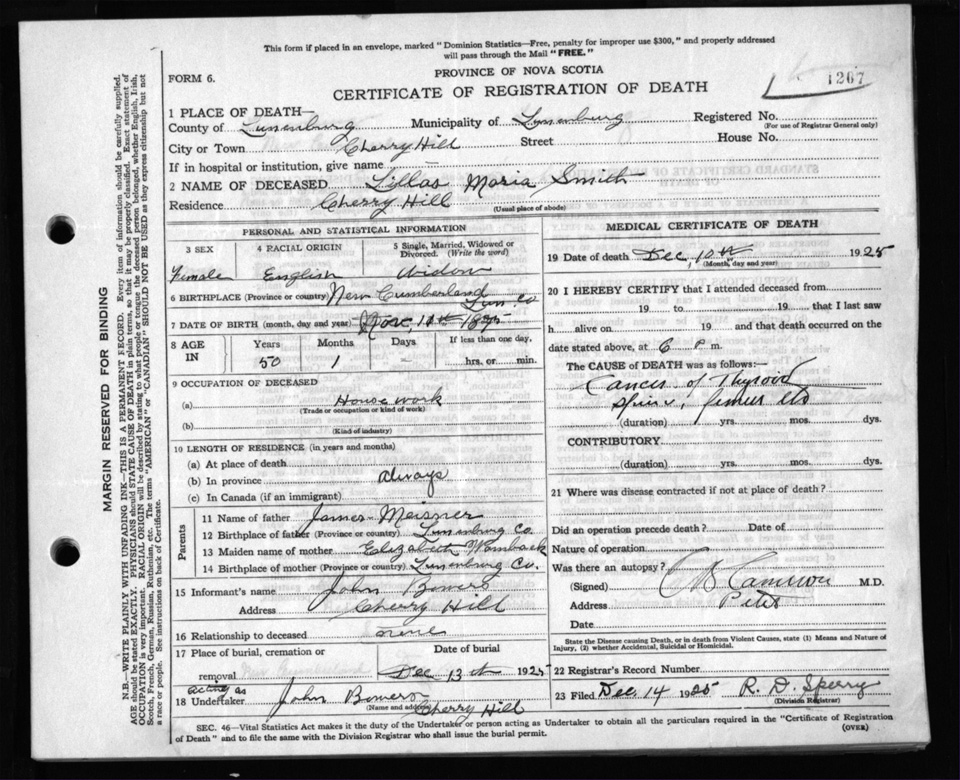 This form if placed in an envelope, marked "Dominion Statistics—Free, penalty for improper use $300," and properly addressed
will pass through the Mail "FREE."
PROVINCE OF NOVA SCOTIA
FORM 6.
CERTIFICATE OF REGISTRATION OF DEATH
1267
1 PLACE OF DEATH—
County of Lunenburg Municipality of Lunenburg Registered No.
(For use of Registrar General only)
City or Town Cherry Hill Street House No.
If in hospital or institution, give name
2 NAME OF DECEASED Lillas Maria Smith
Residence Cherry Hill
(Usual place of abode)
PERSONAL AND STATISTICAL INFORMATION
3 SEX 4 RACIAL ORIGIN 5 Single, Married, Widowed or Divorced. (Write the word)
Female English Widow
6 BIRTHPLACE (Province or country) New Cumberland Lun. Co
7 DATE OF BIRTH (month, day and year) Nov. 10th 1875
8 AGE IN Years Months Days If less than one day,
50 1 - hrs. or min.
9 OCCUPATION OF DECEASED
(a) House work
(Trade or occupation or kind of work)
(b)
(Kind of industry)
10 LENGTH OF RESIDENCE (in years and months)
(a) At place of death
(b) In province always
(c) In Canada (if an immigrant)
Parents
11 Name of father James Meisner
12 Birthplace of father (Province or country) Lunenburg Co.
13 Maiden name of mother Elizabeth Wamback
14 Birthplace of mother (Province or country) Lunenburg Co.
15 Informant's name John Bowers
Address Cherry Hill
16 Relationship to deceased none
17 Place of burial, cremation or removal Date of burial
New Cumberland Dec 13th 1925
acting as
18 Undertaker John Bowers
(Name and address) Cherry Hill
MEDICAL CERTIFICATE OF DEATH
19 Date of death Dec, 10th 1925
(Month, day and year)
20 I HEREBY CERTIFY that I attended deceased from
19 to 19 that I last saw
h alive on 19 and that death occurred on the
date stated above, at 6 P m.
The CAUSE OF DEATH was as follows:
Cancer of Thyroid
Spine, femur etc
(duration) yrs. mos. dys.
CONTRIBUTORY
(duration) yrs. mos. dys.
21 Where was disease contracted if not at place of death?
Did an operation precede death? Date of
Nature of operation
Was there an autopsy?
(Signed) Cameron M.D.
Address Petite
Date
State the Disease causing Death, or in death from Violent Causes, state (1) Means and Nature of
Injury, (2) whether Accidental, Suicidal or Homicidal.
22 Registrar's Record Number
23 Filed Dec. 14 1925 R. D. Sperry
(Division Registrar)
SEC. 46—Vital Statistics Act makes it the duty of the Undertaker or person acting as Undertaker to obtain all the particulars required in the "Certificate of Registration
of Death" and to file the same with the Division Registrar who shall issue the burial permit.
(OVER)
MARGIN RESERVED FOR BINDING
N.B.—WRITE PLAINLY WITH UNFADING INK—THIS IS A PERMANENT RECORD. Every item of information should be carefully supplied.
AGE should be stated EXACTLY. PHYSICIANS should STATE CAUSE OF DEATH in plain terms, so that it may be properly classified. Exact statement of
OCCUPATION is very important. RACIAL ORIGIN will be described by stating to what people or tongue the deceased person belonged, whether English, Irish,
Scotch, French, German, Russian, Ruthenian, etc. The terms "AMERICAN" or "CANADIAN" SHOULD NOT BE USED as they express citizenship but not
a race or people. See instructions on back of Certificate.